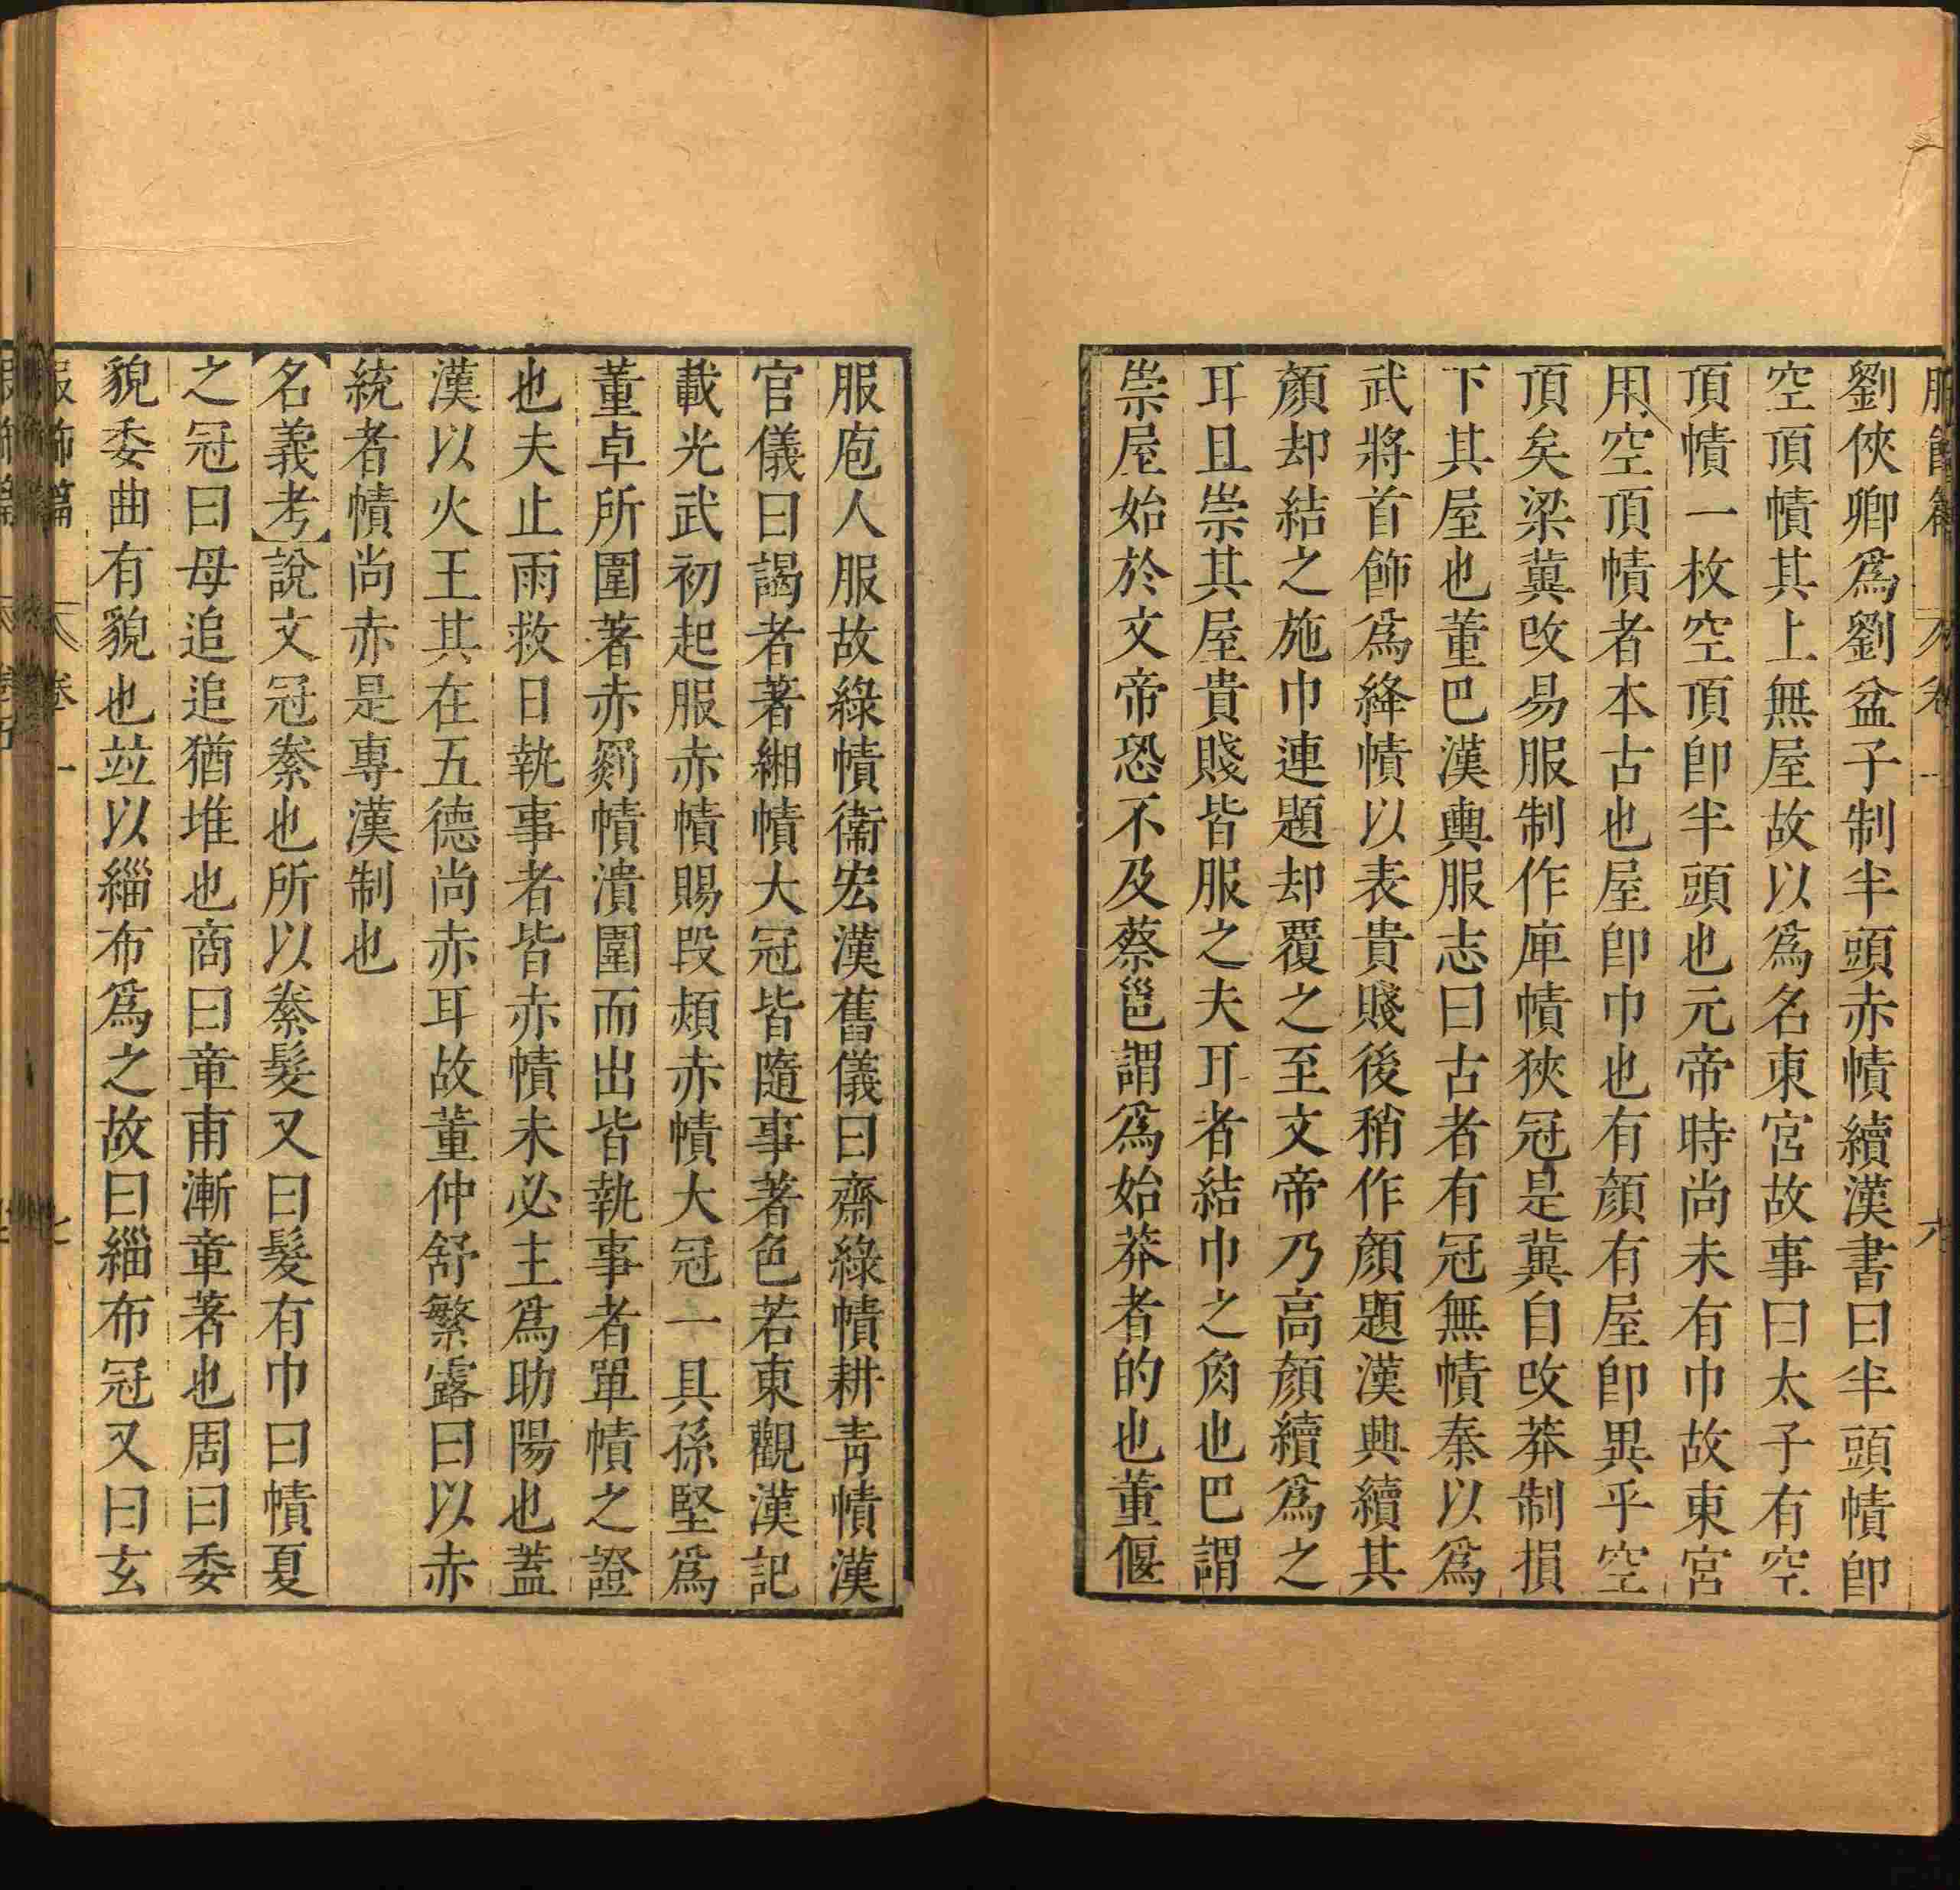 劉俠卿爲劉盆子制半頭赤幘續漢書曰半頭幘卽
空頂幘其上無屋故以爲名東宮故事曰太子有空
頂幘一枚空頂卽半頭也元帝時尚未有巾故東宮
用空頂幘者本古也屋卽巾也有顔有屋卽異乎空
頂矣梁冀改易服制作庳幘狹冠是冀自改莽制損
下其屋也董巴漢輿服志曰古者有冠無幘秦以爲
武將首飾爲絳幘以表貴賤後稍作顔題漢興續其
顔却結之施巾連題却覆之至文帝乃高顔續爲之
耳且崇其屋貴賤皆服之夫耳者結巾之角也巴謂
崇屋始於文帝恐不及蔡邕謂爲始莽者的也董偃
服庖人服故綠幘衞宏漢舊儀曰齋綠幘耕靑幘漢
官儀曰謁者著緗幘大冠皆隨事著色若東觀漢記
載光武初起服赤幘賜段熲赤幘大冠一具孫堅爲
董卓所圍著赤罽幘潰圍而出皆執事者單幘之證
也夫止雨救日執事者皆赤幘未必主爲助陽也蓋
漢以火王其在五德尚赤耳故董仲舒繁露曰以赤
統者幘尚赤是專漢制也
【名義考】說文冠絭也所以絭髮又曰髮有巾曰幘夏
之冠曰母追追猶堆也商曰章甫漸章著也周曰委
貌委曲有貌也竝以緇布爲之故曰緇布冠又曰玄
服飾篇 卷一 七